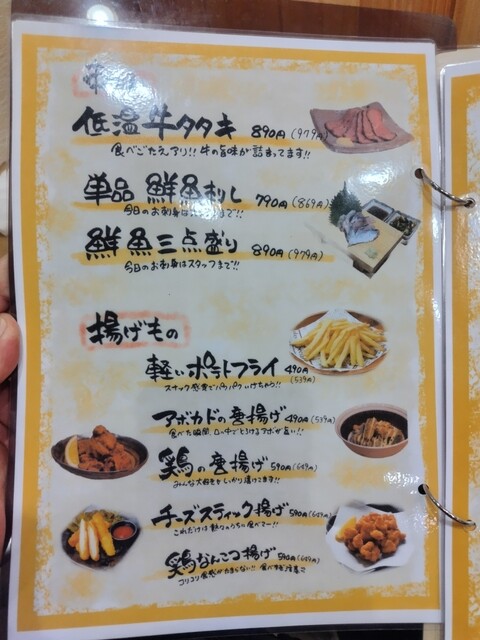 低温牛タタキ 890円(979円)
食べごたえアリ!! 牛の旨味が詰まってます!!
単品 鮮魚刺し 790円(869円)
今日のお刺身は
鮮魚三点盛り 890円(979円)
今日のお刺身はスタッフまで!!
揚げもの
軽いポテトフライ 490円
(539円)
スナック感覚でパクパクいけちゃう!!
アボカドの唐揚げ 490円(539円)
食べた瞬間、口の中でとろけるアボが良い!!
鶏の唐揚げ 590円(649円)
みんな大好き
チーズスティック揚げ 590円(649円)
これだけは
鶏なんこつ揚げ 590円(649円)
コリコリ食感がたまらない!! 食べ過ぎ注意